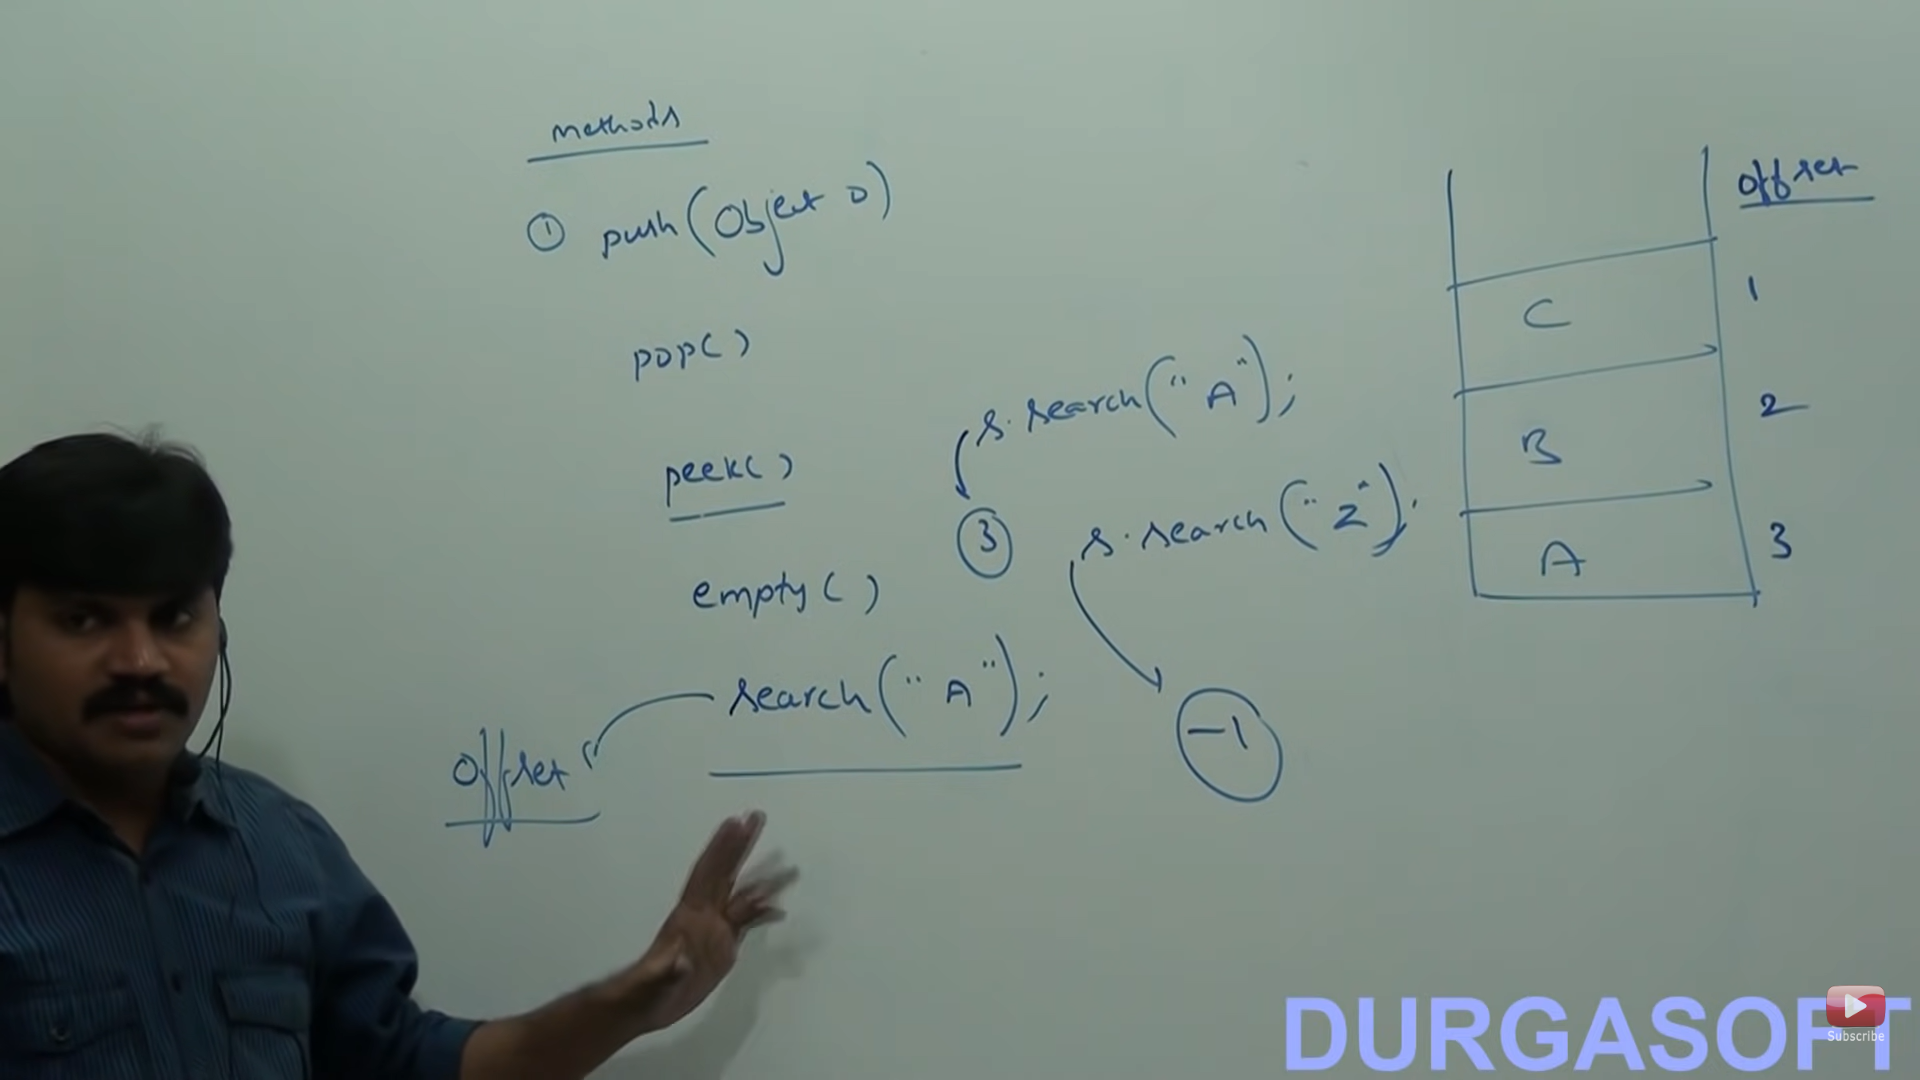 methods
① push(Object o)
pop()
peek()
empty()
search("A");
offset
s.search("A");
3
s.search("Z");
-1
offset
C 1
B 2
A 3
DURGASOFT
Subscribe